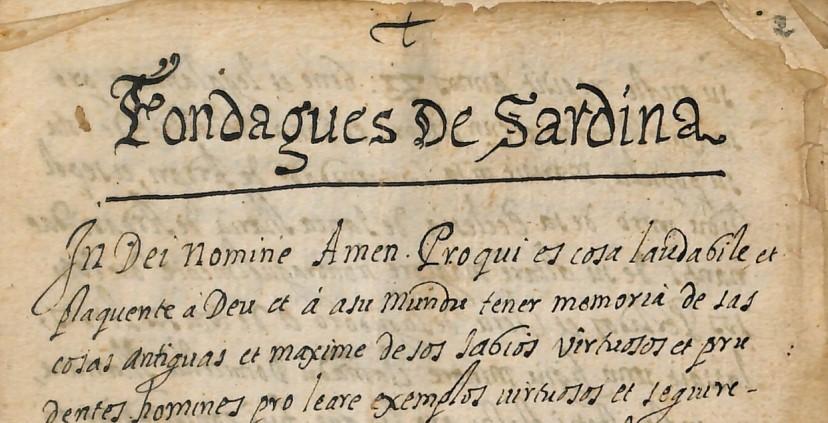 Fondagues De Sardina
In Dei Nomine Amen. Pro qui es cosa laudabile et
plaquente à Deu et á asu Mundu tener memorià de sas
cosas antiguas et maxime de sos sabios virtuosos et pru
dentes homines pro leare exemplos virtuosos et seguire-